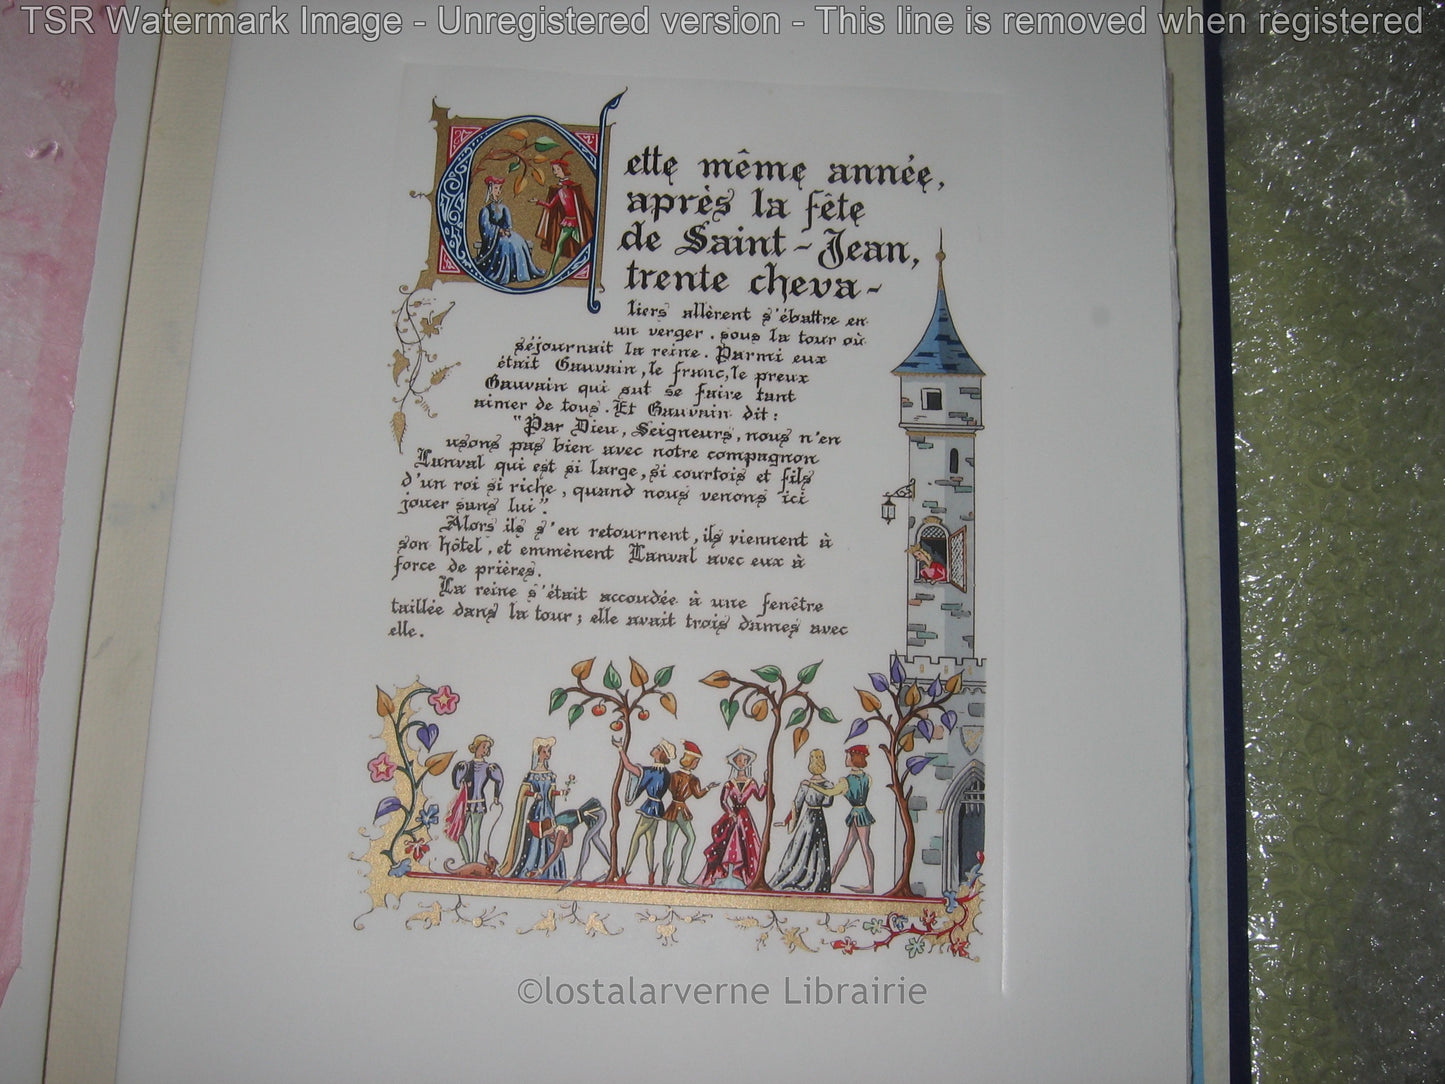 TSR Watermark Image - Unregistered version - This line is removed when registered
Cette même année,
après la fête
de Saint-Jean,
trente cheva-
liers allèrent s'ébattre en
un verger, sous la tour où
séjournait la reine. Parmi eux
était Gauvain, le franc, le preux
Gauvain qui sut se faire tant
aimer de tous. Et Gauvain dit:
"Par Dieu, Seigneurs, nous n'en
usons pas bien avec notre compagnon
Lanval qui est si large, si courtois et fils
d'un roi si riche, quand nous venons ici
jouer sans lui".
Alors ils s'en retournent, ils viennent à
son hôtel, et emmènent Lanval avec eux à
force de prières.
La reine s'était accoudée à une fenêtre
taillée dans la tour; elle avait trois dames avec
elle.
©lostalarverne Librairie